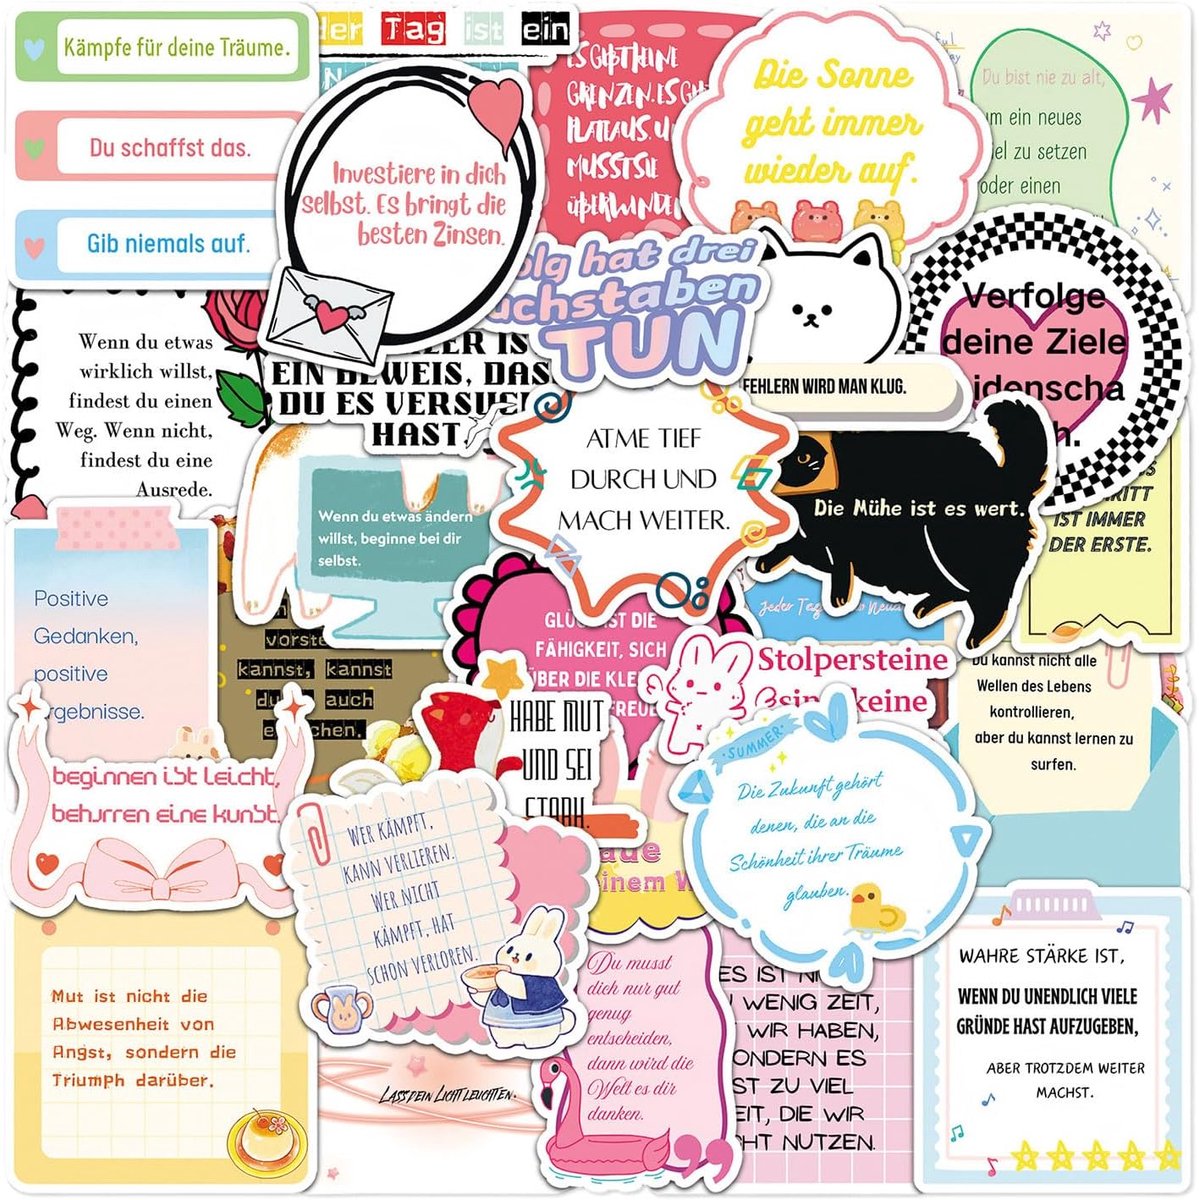 Kämpfe für deine Träume.
Du schaffst das.
Gib niemals auf.
der Tag ist ein
Investiere in dich
selbst. Es bringt die
besten Zinsen.
ES GIBT KEINE
GRENZEN. ES GI
PLATEAUS, U
MUSST SIE
ÜBERWINDEN
Die Sonne
geht immer
wieder auf.
Du bist nie zu alt,
um ein neues
iel zu setzen
oder einen
olg hat drei
uchstaben
TUN
FEHLERN WIRD MAN KLUG.
Verfolge
deine Ziele
idenscha
h.
Wenn du etwas
wirklich willst,
findest du einen
Weg. Wenn nicht,
findest du eine
Ausrede.
LER IS
EIN BEWEIS, DAS
DU ES VERSUC
HAST.
ATME TIEF
DURCH UND
MACH WEITER.
Die Mühe ist es wert.
RITT
IST IMMER
DER ERSTE.
Wenn du etwas ändern
willst, beginne bei dir
selbst.
Positive
Gedanken,
positive
rgebnisse.
vorste
kannst, kannst
du auch
e chen.
GLÜ IST DIE
FÄHIGKEIT, SICH
ÜBER DIE KLE
FREUE
Jeder Tag
Stolpersteine
sin keine
Du kannst nicht alle
Wellen des Lebens
kontrollieren,
aber du kannst lernen zu
surfen.
beginnen ist leicht,
beharren eine kunst.
HABE MUT
UND SEI
STARK.
SUMMER
Die Zukunft gehört
denen, die an die
Schönheit ihrer Träume
glauben.
Wer kämpft,
kann verlieren.
Wer nicht
kämpft, hat
schon verloren.
ade
inem W
Mut ist nicht die
Abwesenheit von
Angst, sondern die
Triumph darüber.
Lass dein Licht leuchten.
Du musst
dich nur gut
genug
entscheiden,
dann wird die
Welt es dir
danken.
ES IST NI
WENIG ZEIT,
WIR HABEN,
ONDERN ES
ST ZU VIEL
EIT, DIE WIR
CHT NUTZEN.
WAHRE STÄRKE IST,
WENN DU UNENDLICH VIELE
GRÜNDE HAST AUFZUGEBEN,
ABER TROTZDEM WEITER
MACHST.